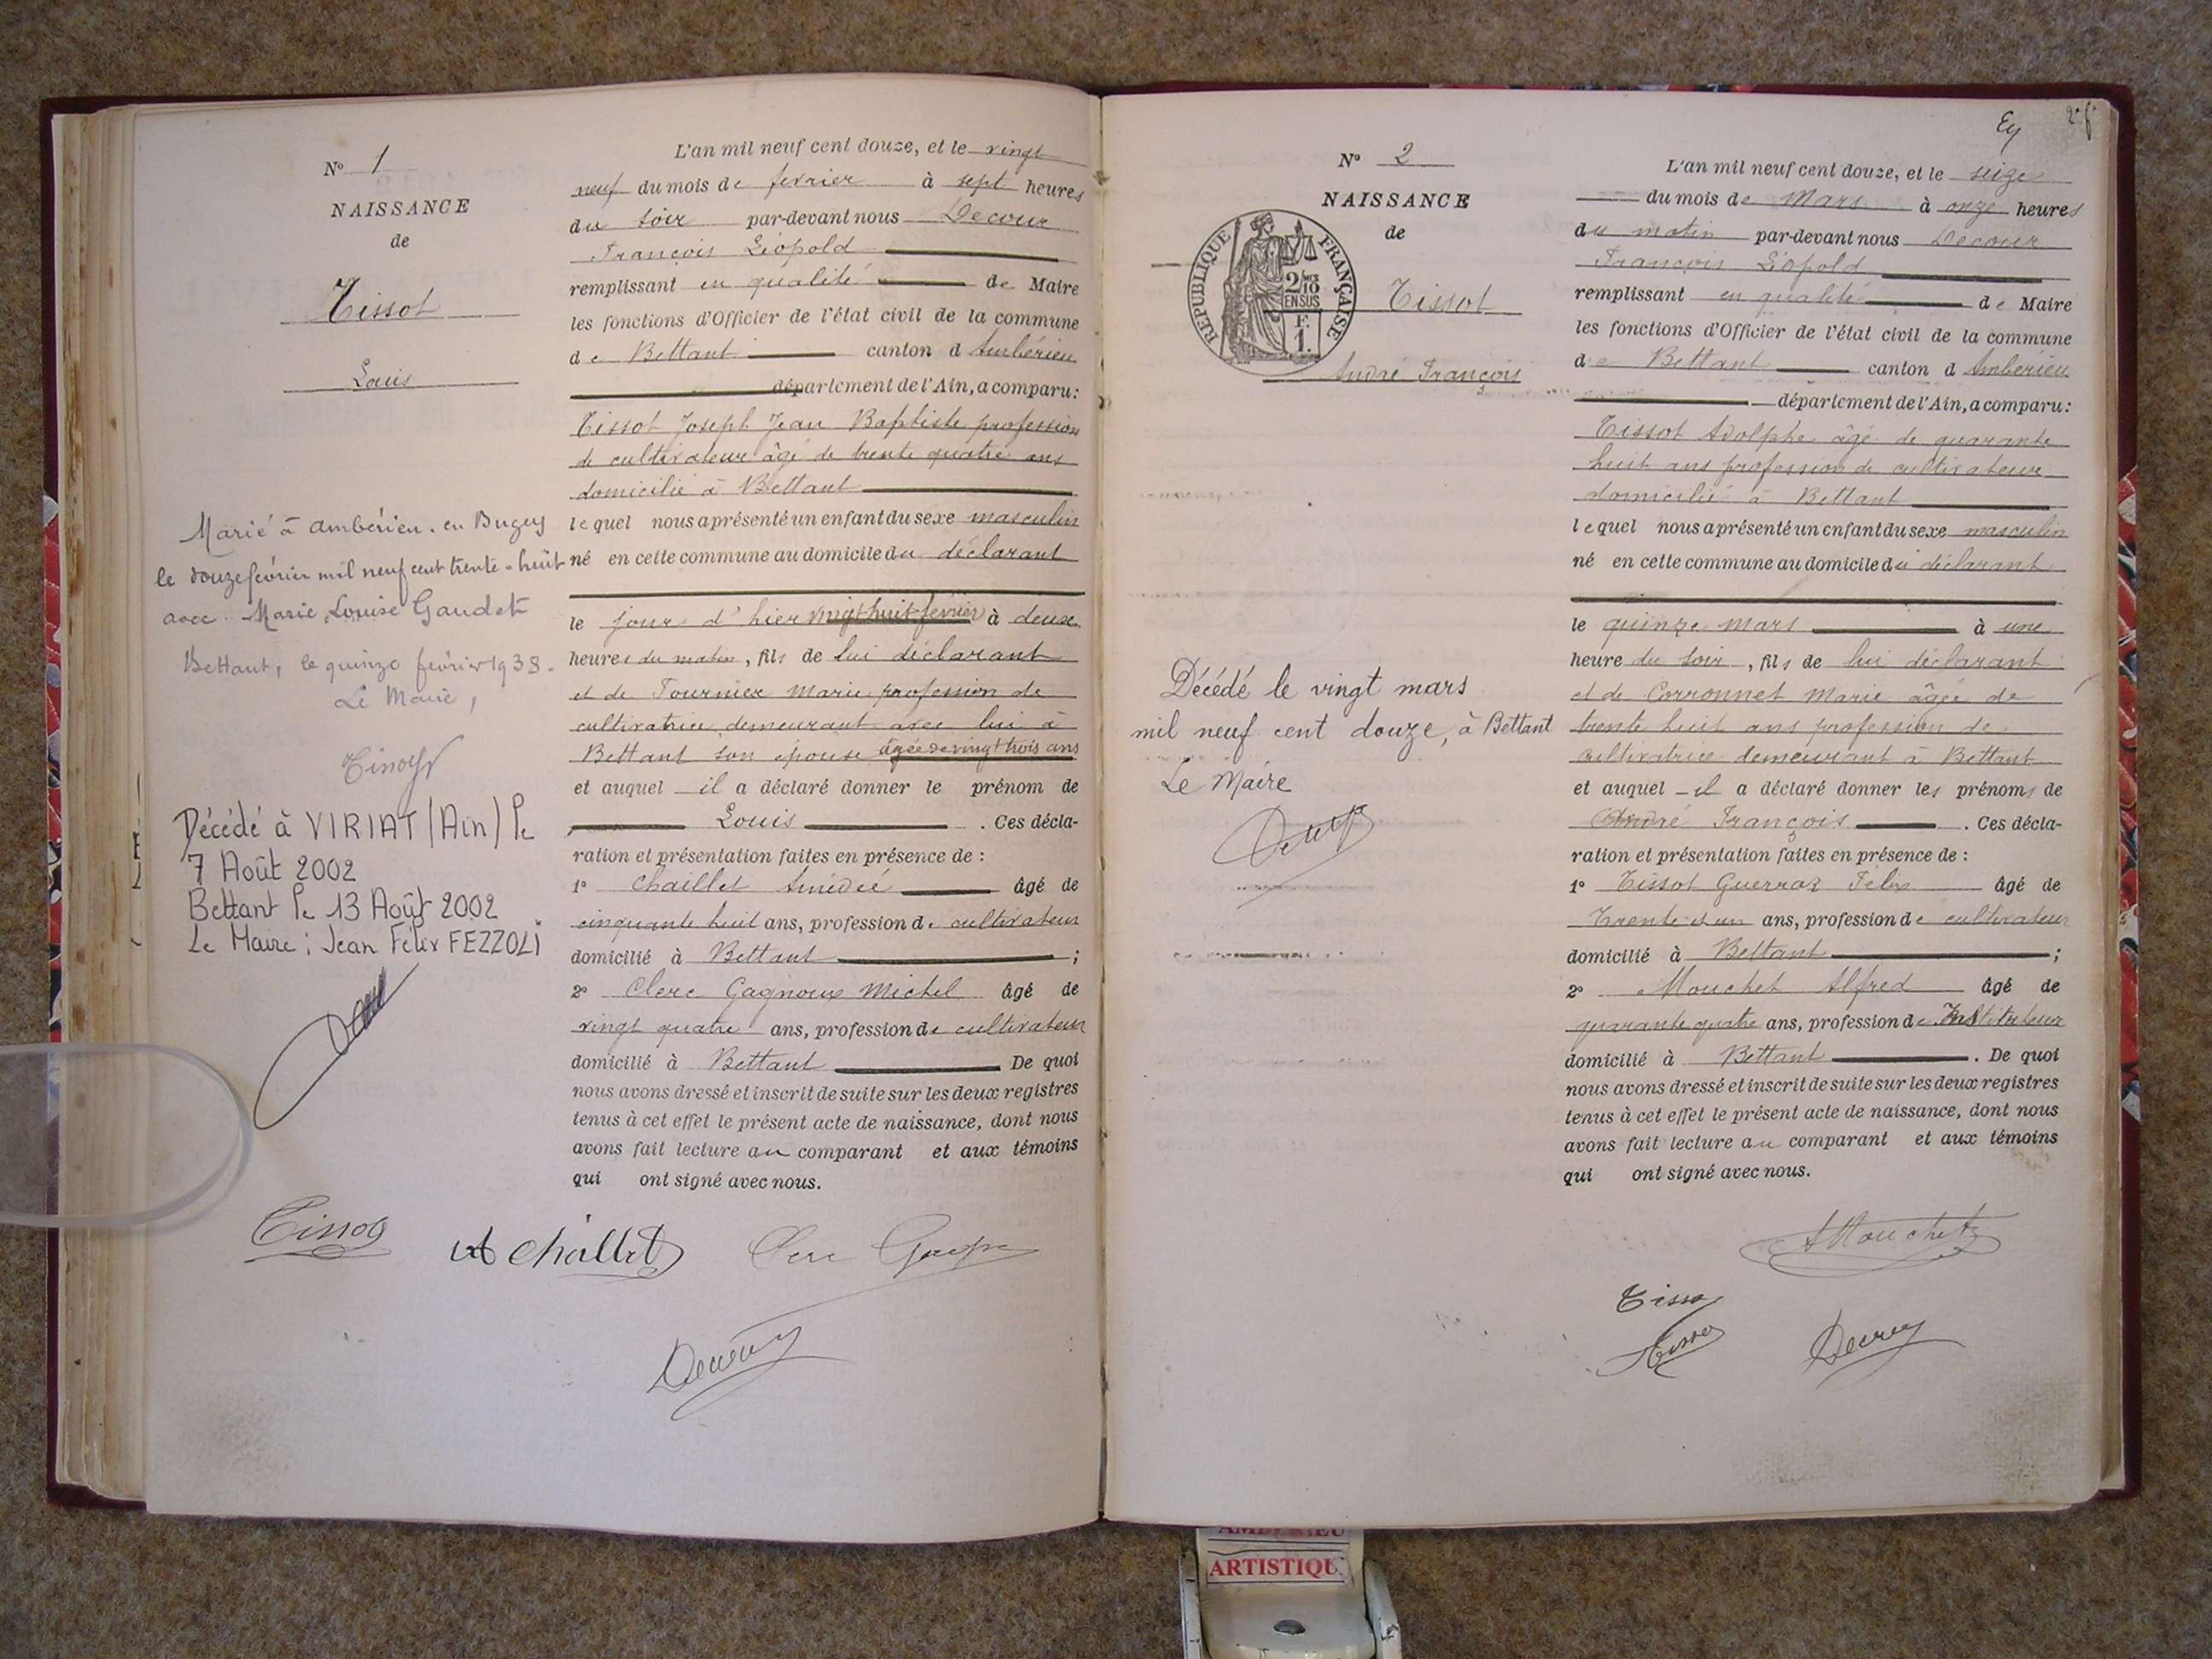 Nº 1
NAISSANCE
de
Tissot
Louis
Marié à Ambérieu. en Bugey
le douze février mil neuf cent trente-huit
avec Marie Louise Gaudet
Bettant, le quinze février 1938.
Le Maire,
Décédé à VIRIAT (Ain) le
7 Août 2002
Bettant le 13 Août 2002
Le Maire : Jean Félix FEZZOLI
L'an mil neuf cent douze, et le vingt
neuf du mois de fevrier à sept heures
du soir par-devant nous Decour
François Léopold
remplissant en qualité de Maire
les fonctions d'Officier de l'état civil de la commune
de Bettant canton d Ambérieu
département de l'Ain, a comparu:
Tissot Joseph Jean Baptiste profession
de cultivateur âgé de trente quatre ans
domicilié à Bettant
lequel nous a présenté un enfant du sexe masculin
né en cette commune au domicile du déclarant
le jour d'hier vingt huit février à deux
heures du matin, fils de lui déclarant
et de Tournier Marie profession de
cultivatrice demeurant avec lui à
Bettant son épouse âgée de vingt trois ans
et auquel il a déclaré donner le prénom de
Louis . Ces décla-
ration et présentation faites en présence de :
1º Chaillet Amédée âgé de
cinquante huit ans, profession de cultivateur
domicilié à Bettant ;
2º Clerc Gagnoux Michel âgé de
vingt quatre ans, profession de cultivateur
domicilié à Bettant De quoi
nous avons dressé et inscrit de suite sur les deux registres
tenus à cet effet le présent acte de naissance, dont nous
avons fait lecture au comparant et aux témoins
qui ont signé avec nous.
Tissot
A Chaillet
Clerc
Nº 2
NAISSANCE
de
RÉPUBLIQUE FRANÇAISE
2/10
EN SUS
F.
1.
Tissot
André François
Décédé le vingt mars
mil neuf cent douze, à Bettant
Le Maire
L'an mil neuf cent douze, et le seize
du mois de Mars à onze heures
du matin par-devant nous Decour
François Léopold
remplissant en qualité de Maire
les fonctions d'Officier de l'état civil de la commune
de Bettant canton d Ambérieu
département de l'Ain, a comparu:
Tissot Adolphe âgé de quarante
huit ans profession de cultivateur
domicilié à Bettant
lequel nous a présenté un enfant du sexe masculin
né en cette commune au domicile du déclarant
le quinze mars à une
heure du soir, fils de lui déclarant
et de Corronnet Marie âgée de
trente huit ans profession de
cultivatrice demeurant à Bettant
et auquel il a déclaré donner les prénoms de
André François . Ces décla-
ration et présentation faites en présence de :
1º Tissot Guerraz Felix âgé de
Trente et un ans, profession de cultivateur
domicilié à Bettant ;
2º Mouchet Alfred âgé de
quarante quatre ans, profession de Instituteur
domicilié à Bettant . De quoi
nous avons dressé et inscrit de suite sur les deux registres
tenus à cet effet le présent acte de naissance, dont nous
avons fait lecture au comparant et aux témoins
qui ont signé avec nous.
A Mouchet
ARTISTIQU